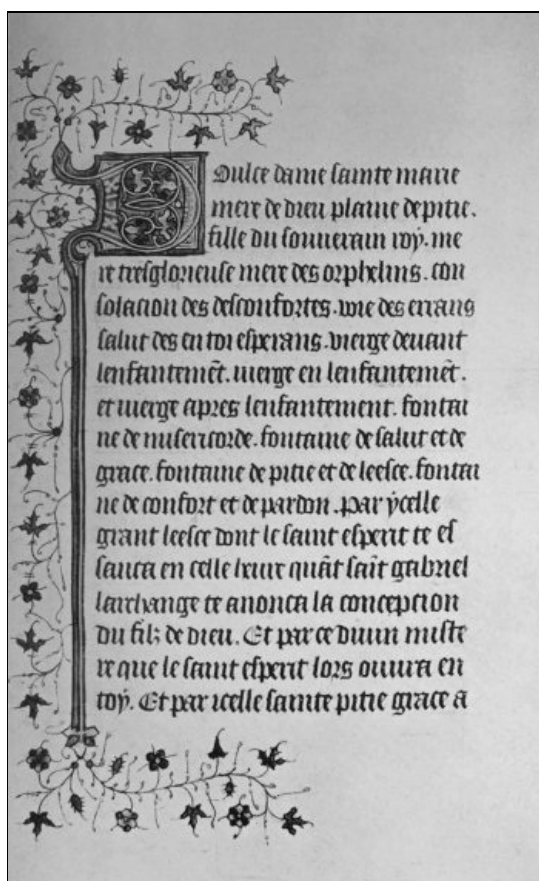 Dulce dame sainte marie
mere de dieu plaine de pitie.
fille du souuerain roy. me
re tresglorieuse mere des orphelins. con
solacion des desconfortes. voie des errans
salut des en toi esperans. vierge deuant
lenfantemēt. uierge en lenfantemēt.
et uierge apres lenfantement. fontai
ne de misericorde. fontaine de salut et de
grace. fontaine de pitie et de leesce. fontai
ne de confort et de pardon. Par ycelle
grant leesce dont le saint esperit te es
sauca en celle heure quāt saīt gabriel
larchange te anonca la concepcion
du filz de dieu. Et par ce diuin miste
re que le saint esperit lors ouura en
toy. Et par icelle sainte pitie grace a